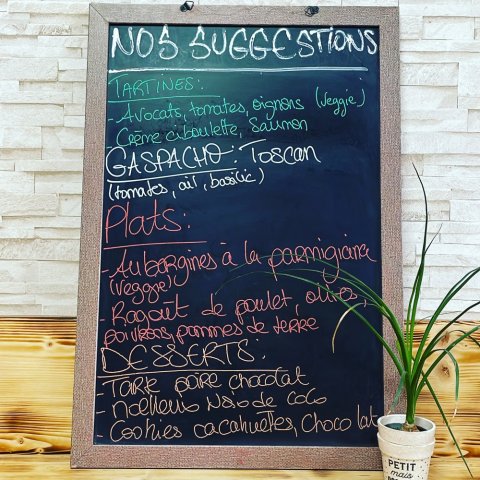 NOS SUGGESTIONS
TARTINES:
- Avocats, tomates, oignons (veggie)
- Crème ciboulette, Saumon
GASPACHO: Toscan
(tomates, ail, basilic)
Plats:
- Aubargines à la parmigiana
(veggie)
- Ragoût de poulet, olives,
poivrons, pommes de terre
DESSERTS:
- Tarte poire chocolat
- moelleux Noix de coco
- Cookies cacahuettes, chocolat
PETIT
mais